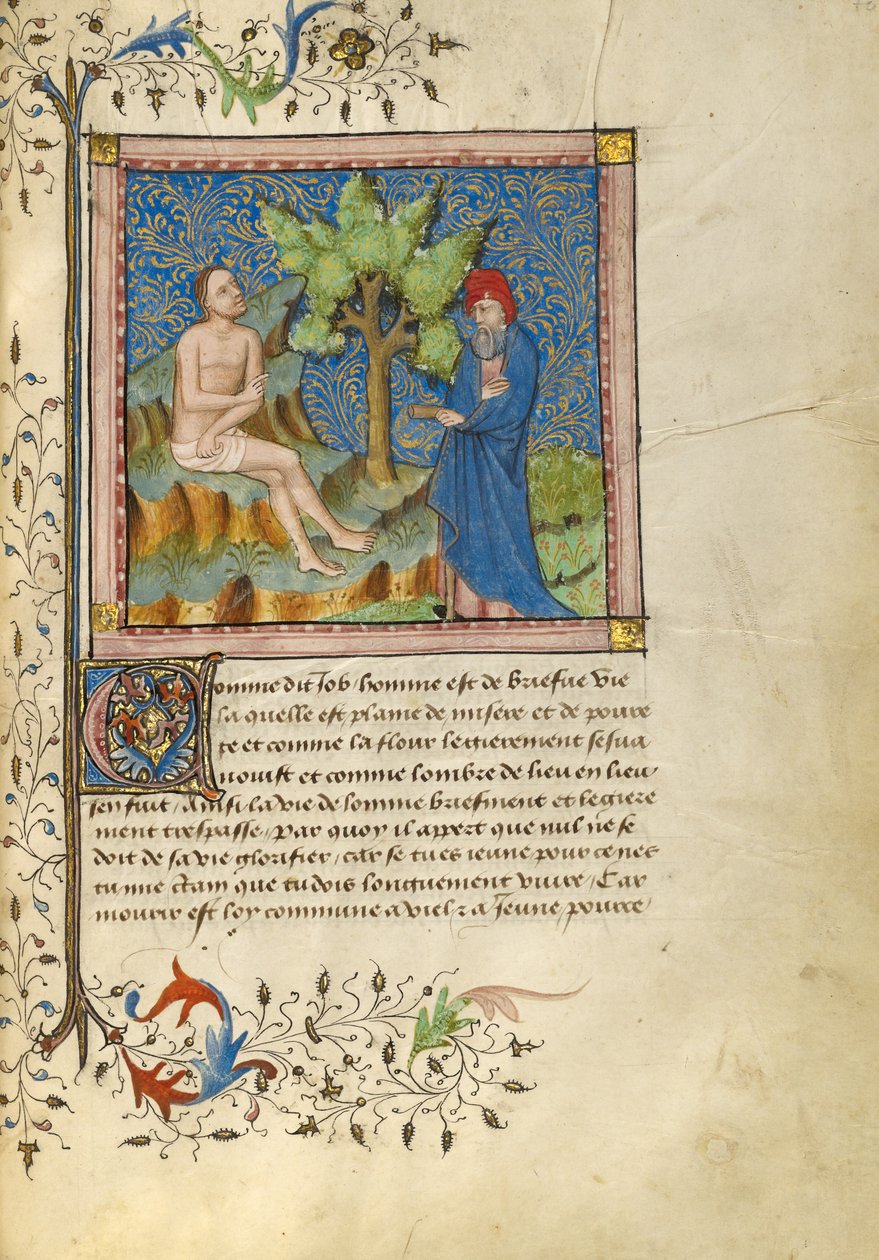 Comme dit Job, homme est de briefue vie
la quelle est plaine de misere et de poure
te et comme la flour legierement sesua
nouist et comme lombre de lieu en lieu
sen fuit, Ainsi la vie de lomme briefment et legiere
ment trespasse, Par quoy il appert que nul ne se
doit de sa vie glorifier, car se tu es ieune pour ce nes
tu mie ctain que tu dois longuement viure, Car
mourir est loy commune a viel z a Jeune, pource